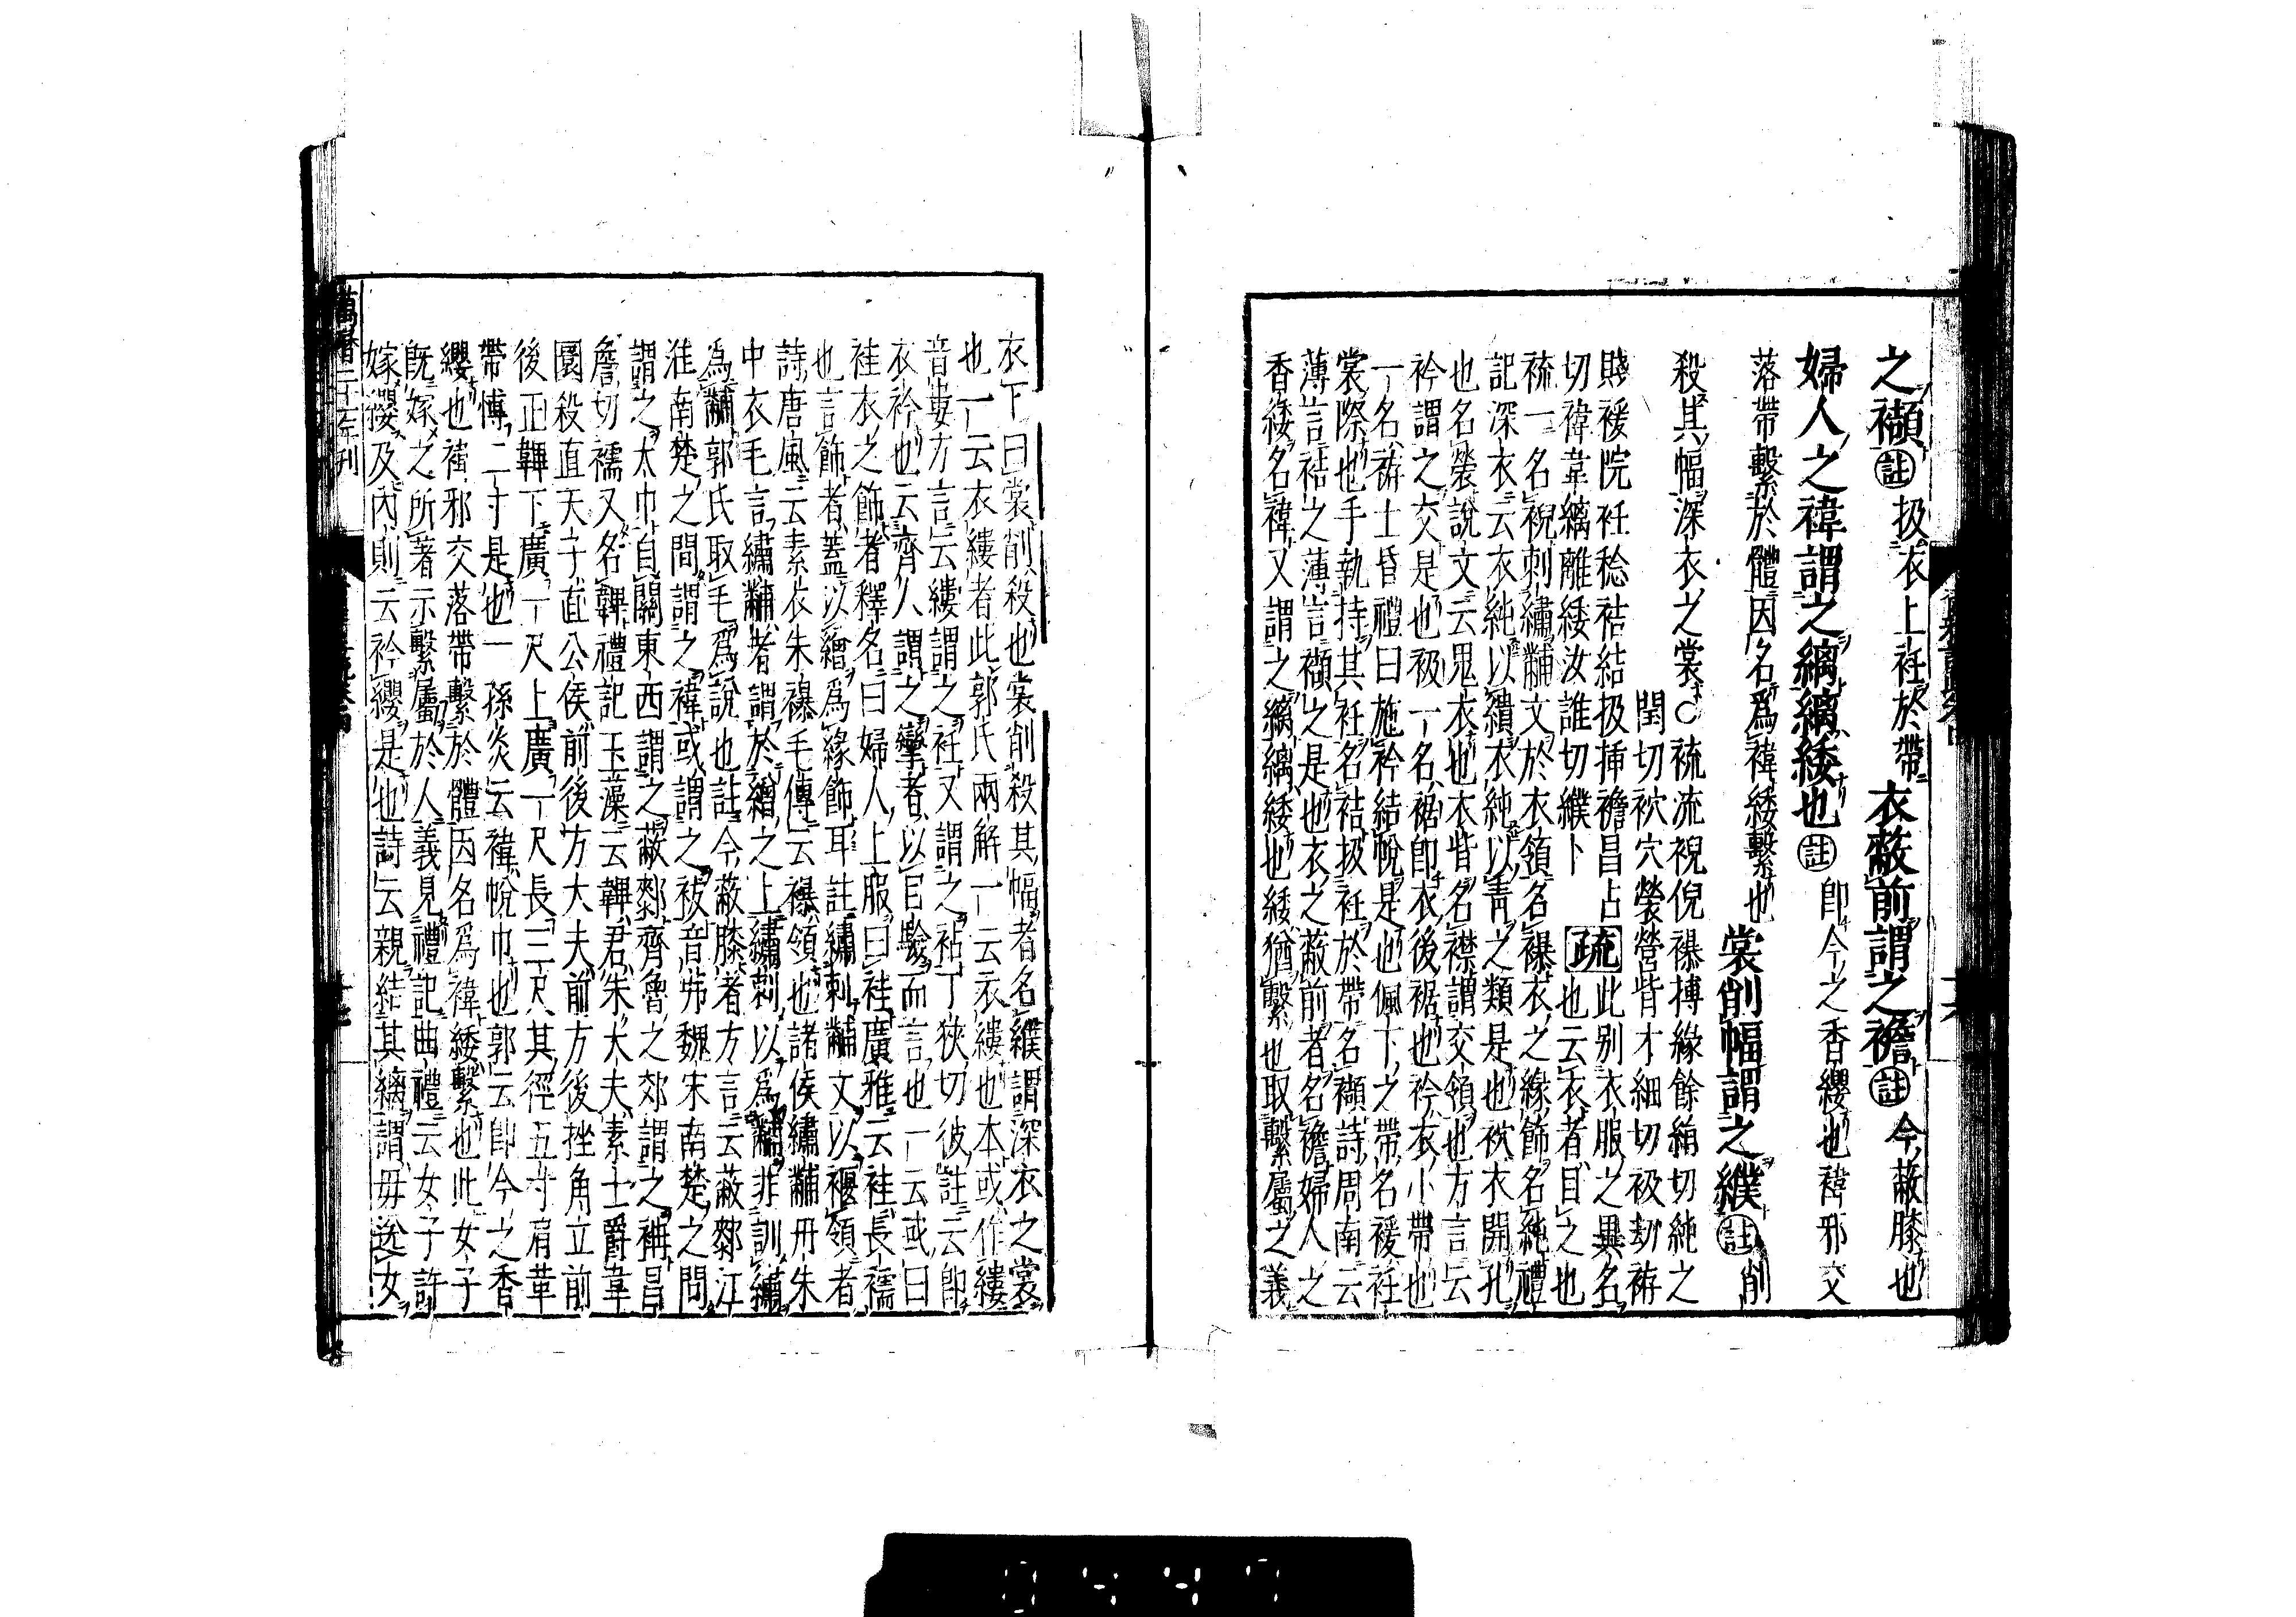 之襭註扱衣上衽於帶衣蔽前謂之襜註今蔽膝也
婦人之褘謂之縭縭緌也註即今之香纓也褘邪交
落帶繫於體因名爲褘緌繫也裳削幅謂之纀註削
殺其幅深衣之裳○裗流裞倪襮搏緣餘絹切純之
閏切袕穴褮營眥才細切衱劫袸
賤褑院衽稔袺結扱插襜昌占
切褘韋縭離緌汝誰切纀卜
疏此別衣服之異名
也云衣者目之也
裗一名裞刺繡黼文於衣領名襮衣之緣飾名純禮
記深衣云衣純以繢衣純以青之類是也袕衣開孔
也名褮說文云鬼衣也衣眥名襟謂交領也方言云
衿謂之交是也衱一名裾即衣後裾也衿衣小帶也
一名袸士昏禮曰施衿結帨是也佩下之帶名褑衽
裳際也手執持其衽名袺扱衽於帶名襭詩周南云
薄言袺之薄言襭之是也衣之蔽前者名襜婦人之
香緌名褘又謂之縭縭緌也緌猶繫也取繫屬之義
衣下曰裳削殺也裳削殺其幅者名纀謂深衣之裳
也一云衣縷者此郭氏兩解一云衣縷也本或作縷
音婁方言云縷謂之衽又謂之袩丁狹切彼註云即
衣衿也云齊人謂之攣者以目驗而言也一云或曰
袿衣之飾者釋名曰婦人上服曰袿廣雅云袿長襦
也言飾者蓋以繒爲緣飾耳註繡刺黼文以褗領者
詩唐風云素衣朱襮毛傳云襮領也諸侯繡黼丹朱
中衣毛言繡黼者謂於繒之上繡刺以爲黼非訓繡
爲黼郭氏取毛爲說也註今蔽膝者方言云蔽厀江
淮南楚之間謂之褘或謂之袚音弗魏宋南楚之間
謂之大巾自關東西謂之蔽厀齊魯之郊謂之袡昌
詹切襦又名韠禮記玉藻云韠君朱大夫素士爵韋
圜殺直天子直公侯前後方大夫前方後挫角立前
後正韠下廣一尺上廣一尺長三尺其徑五寸肩革
帶博二寸是也一孫炎云褘帨巾也郭云即今之香
纓也褘邪交落帶繫於體因名爲褘緌繫也此女子
旣嫁之所著示繫屬於人義見禮記曲禮云女子許
嫁纓及內則云衿纓是也詩云親結其縭謂毋送女
萬曆二十一年刊